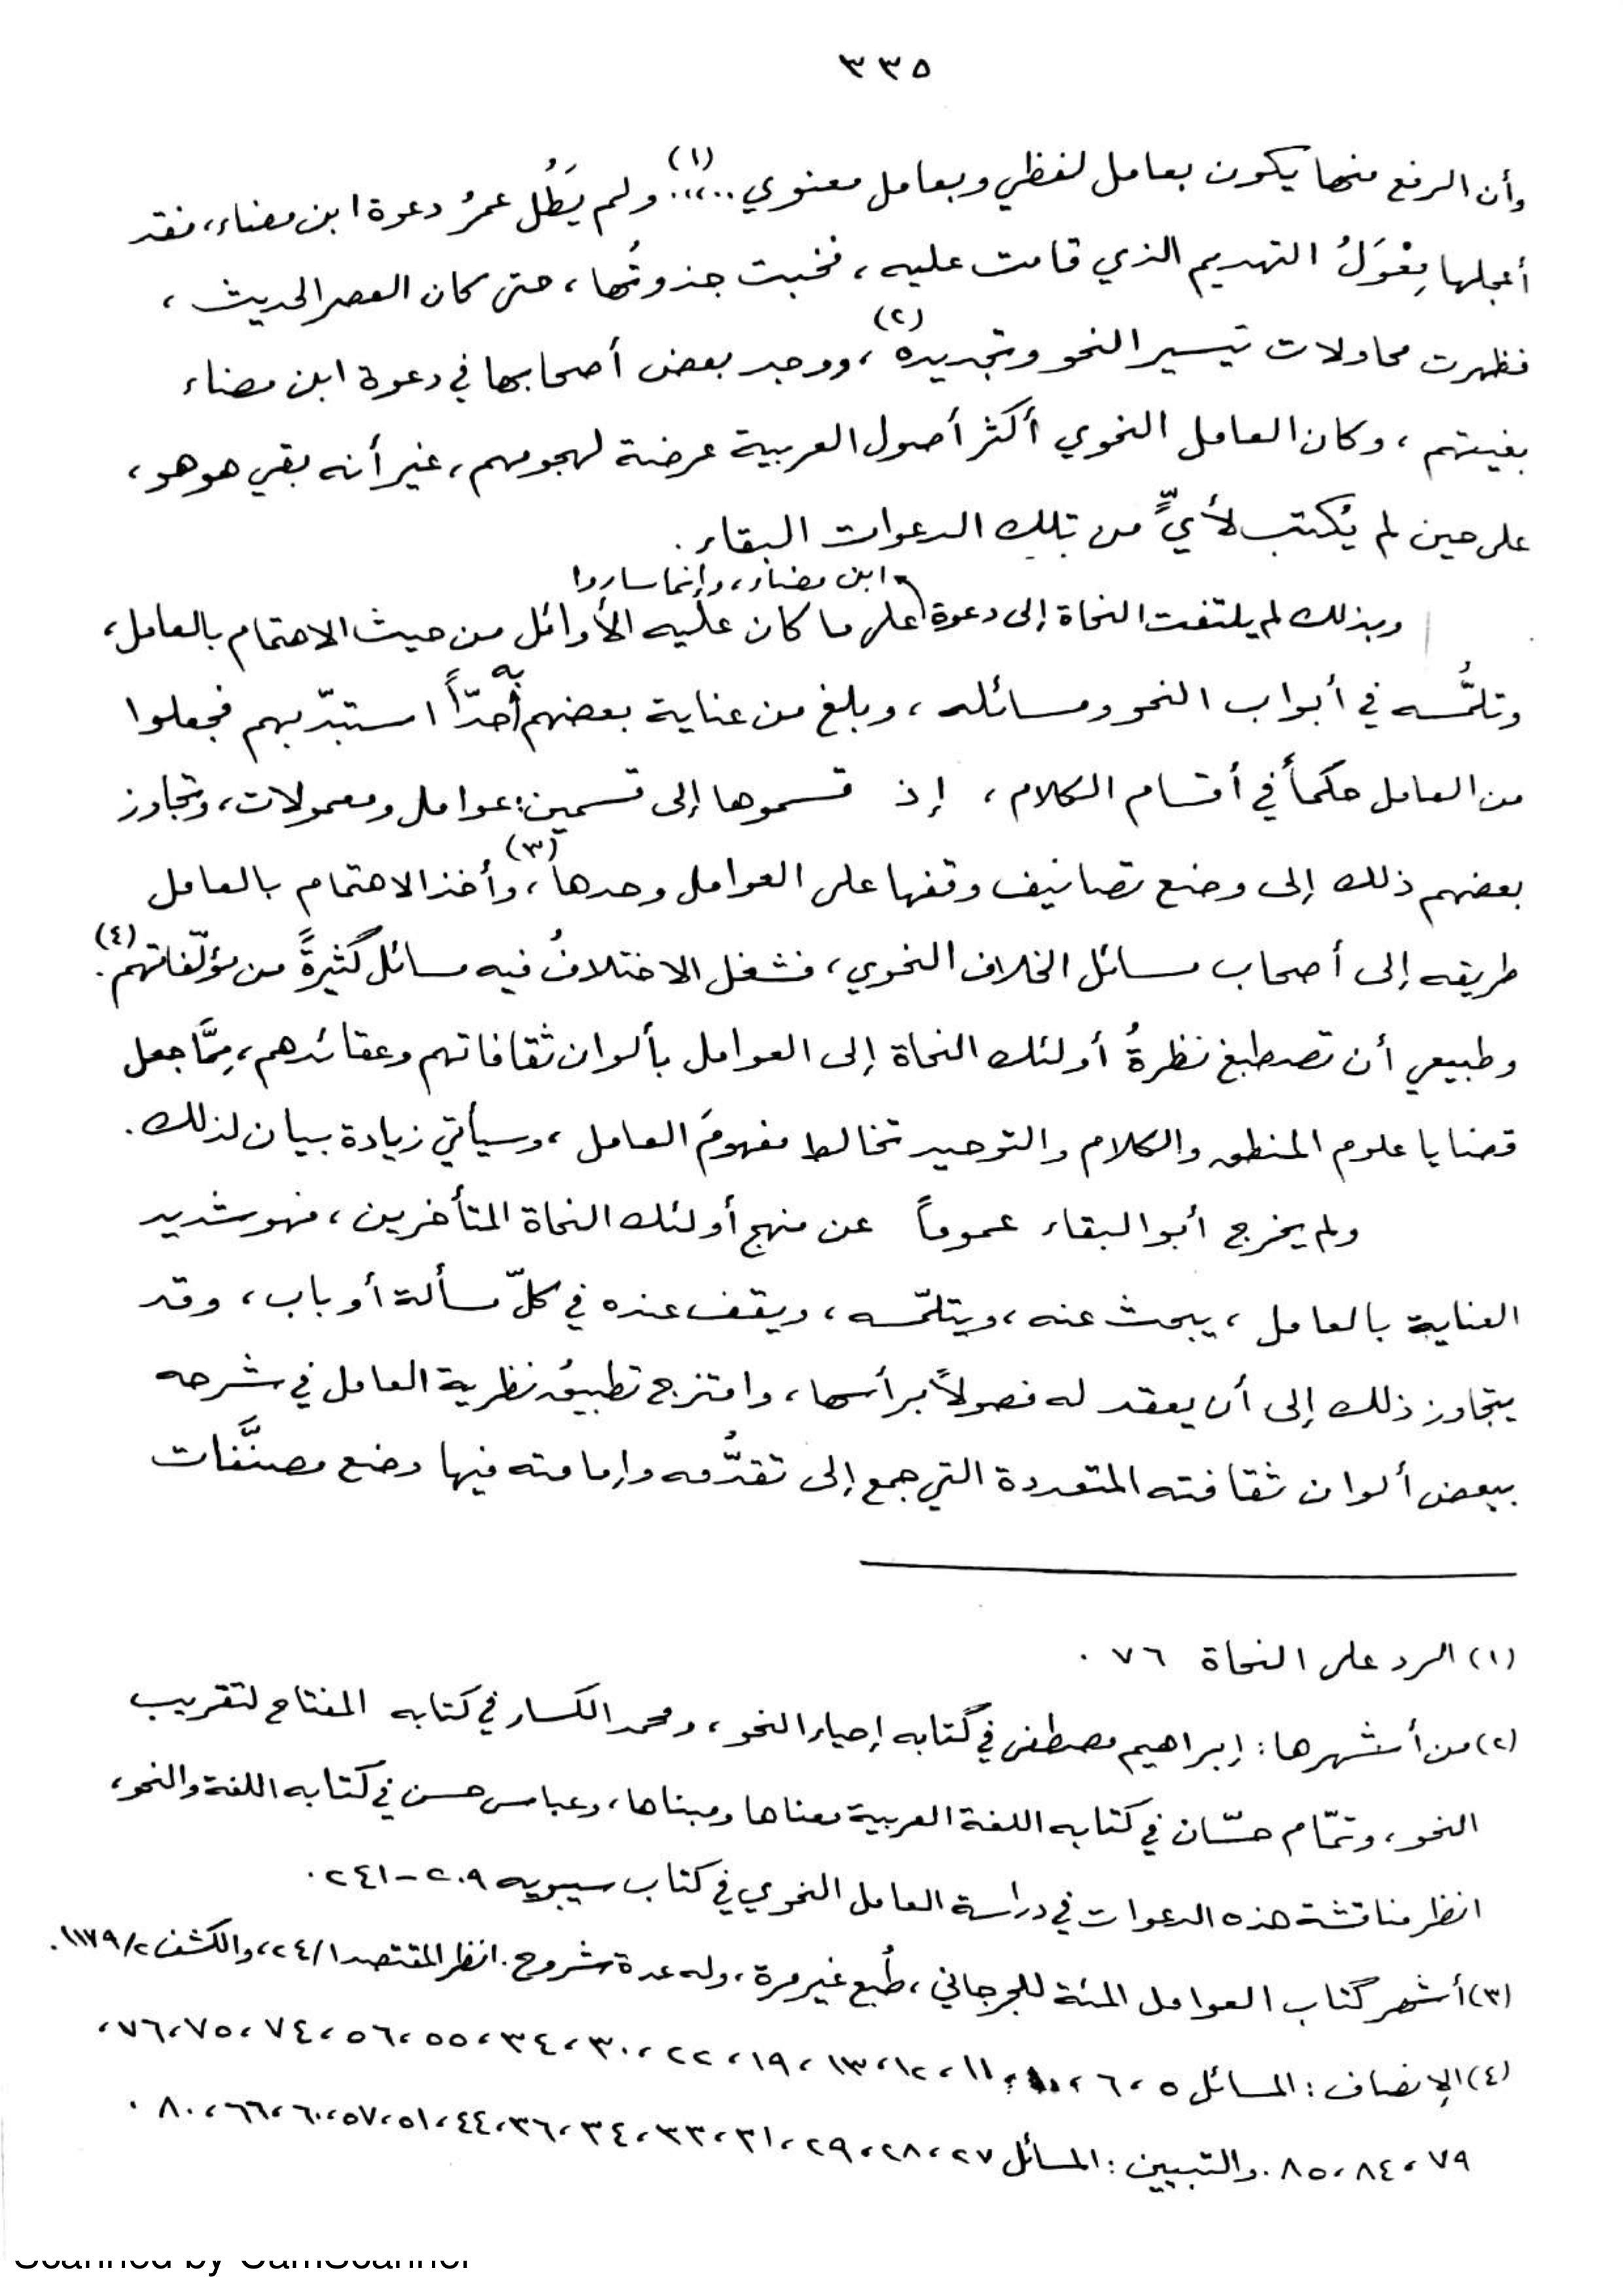 ٣٣٥
وأن الرفع منها يكون بعامل لفظي وبعامل معنوي ..،،..(١) ولم يَطُل عمرُ دعوة ابن مضاء، فقد
أعجلها مِعْوَلُ التهديم الذي قامت عليه ، فخبت جذوتُها ، حتى كان العصر الحديث ،
فظهرت محاولات تيسير النحو وتجديده(٢) ، ووجد بعض أصحابها في دعوة ابن مضاء
بغيتهم ، وكان العامل النحوي أكثر أصول العربية عرضة لهجومهم ، غير أنه بقي هو هو ،
على حين لم يُكتب لأيٍّ من تلك الدعوات البقاء .
وبذلك لم يلتفت النحاة إلى دعوة ابن مضاء، وإنما ساروا على ما كان عليه الأوائل من حيث الاهتمام بالعامل ،
وتلمُّسه في أبواب النحو ومسائله ، وبلغ من عناية بعضهم به حدّاً استبدّ بهم فجعلوا
من العامل حكماً في أقسام الكلام ، إذ قسموها إلى قسمين : عوامل ومعمولات ، وتجاوز
بعضهم ذلك إلى وضع تصانيف وقفها على العوامل وحدها(٣) ، وأخذ الاهتمام بالعامل
طريقه إلى أصحاب مسائل الخلاف النحوي ، فشغل الاختلافُ فيه مسائل كثيرةً من مؤلّفاتهم(٤) .
وطبيعي أن تصطبغ نظرةُ أولئك النحاة إلى العوامل بألوان ثقافاتهم وعقائدهم ، مِمَّا جعل
قضايا علوم المنطق والكلام والتوحيد تخالط مفهومَ العامل ، وسيأتي زيادة بيان لذلك .
ولم يخرج أبو البقاء عموماً عن منهج أولئك النحاة المتأخرين ، فهو شديد
العناية بالعامل ، يبحث عنه ، ويتلمّسه ، ويقف عنده في كلّ مسألة أو باب ، وقد
يتجاوز ذلك إلى أن يعقد له فصولاً برأسها ، وامتزج تطبيقُ نظرية العامل في شرحه
ببعض ألوان ثقافته المتعددة التي جمع إلى تقدُّمه وإمامته فيها وضع مصنَّفات
(١) الرد على النحاة ٧٦ .
(٢) من أشهرها : إبراهيم مصطفى في كتابه إحياء النحو ، ومحمد الكسار في كتابه المفتاح لتقريب
النحو ، وتمّام حسّان في كتابه اللغة العربية معناها ومبناها ، وعباس حسن في كتابه اللغة والنحو ،
انظر مناقشة هذه الدعوات في دراسة العامل النحوي في كتاب سيبويه ٢٠٩ - ٢٤١ .
(٣) أشهر كتاب العوامل المئة للجرجاني ، طُبع غير مرة ، وله عدة شروح . انظر المقتصد ٢٤/١ ، والكشف ١١٧٩/٢ .
(٤) الإنصاف : المسائل ٥ ، ٦ ، ١٠ ، ١١ ، ١٢ ، ١٣ ، ١٩ ، ٢٢ ، ٣٠ ، ٣٤ ، ٥٥ ، ٥٦ ، ٧٤ ، ٧٥ ، ٧٦ ،
٧٩ ، ٨٤ ، ٨٥ . والتبيين : المسائل ٢٧ ، ٢٨ ، ٢٩ ، ٣١ ، ٣٣ ، ٣٤ ، ٣٦ ، ٤٤ ، ٥١ ، ٥٧ ، ٦٠ ، ٦٦ ، ٨٠ .
Scanned by CamScanner